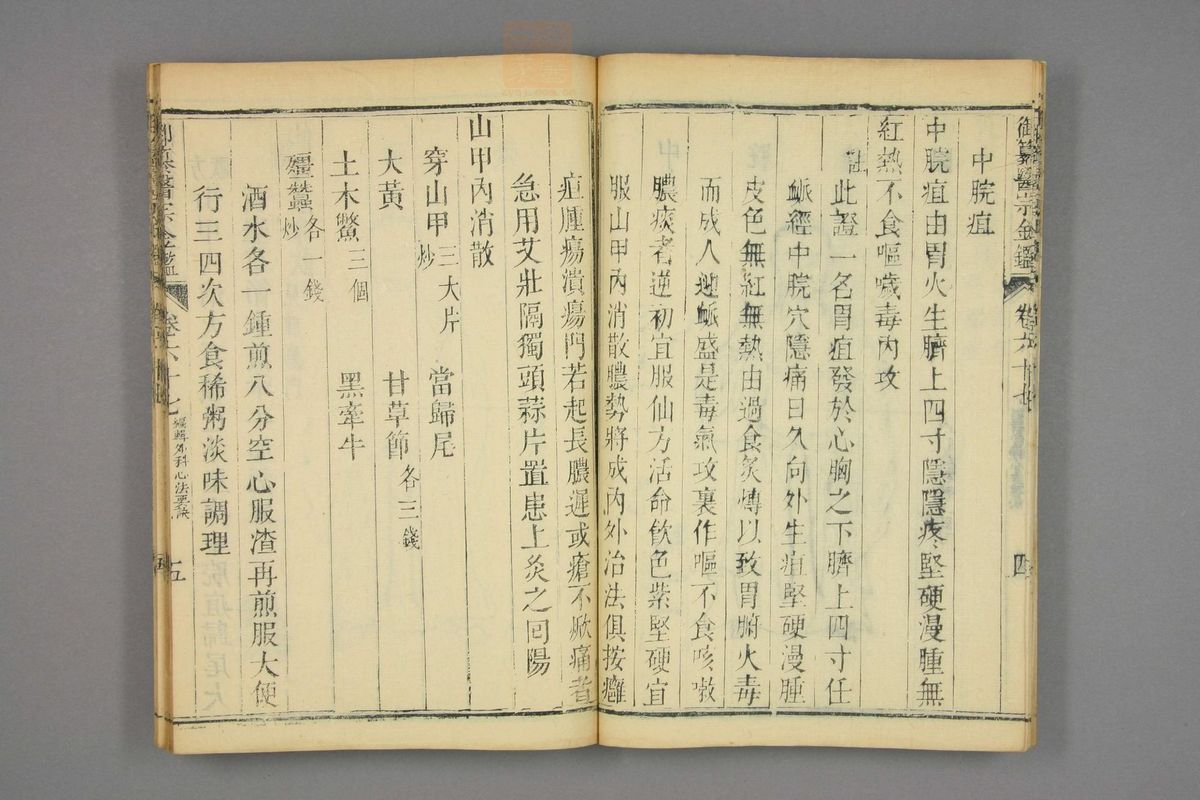 御纂醫宗金鑑 卷六十七 四
中脘疽
中脘疽由胃火生臍上四寸隱隱疼堅硬漫腫無
紅熱不食嘔噦毒內攻
註此證一名胃疽發於心胸之下臍上四寸任
䘑經中脘穴隱痛日久向外生疽堅硬漫腫
皮色無紅無熱由過食炙煿以致胃腑火毒
而成人迎䘑盛是毒氣攻裏作嘔不食咳嗽
膿痰者逆初宜服仙方活命飲色紫堅硬宜
服山甲內消散膿勢將成內外治法俱按癰
疽腫瘍潰瘍門若起長膿遲或瘡不焮痛者
急用艾壯隔獨頭蒜片置患上炙之囘陽
山甲內消散
穿山甲三大片炒 當歸尾
大黃 甘草節各三錢
土木鱉三個 黑牽牛
殭蠶各一錢炒
酒水各一鍾煎八分空心服渣再煎服大便
行三四次方食稀粥淡味調理
御纂醫宗金鑑 卷六十七 編輯外科心法要訣 五